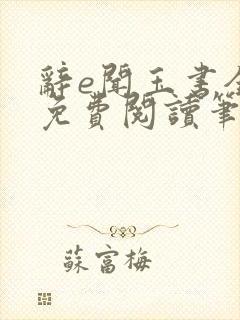 辭e聞玉書全
免費閱讀筆
蘇富梅